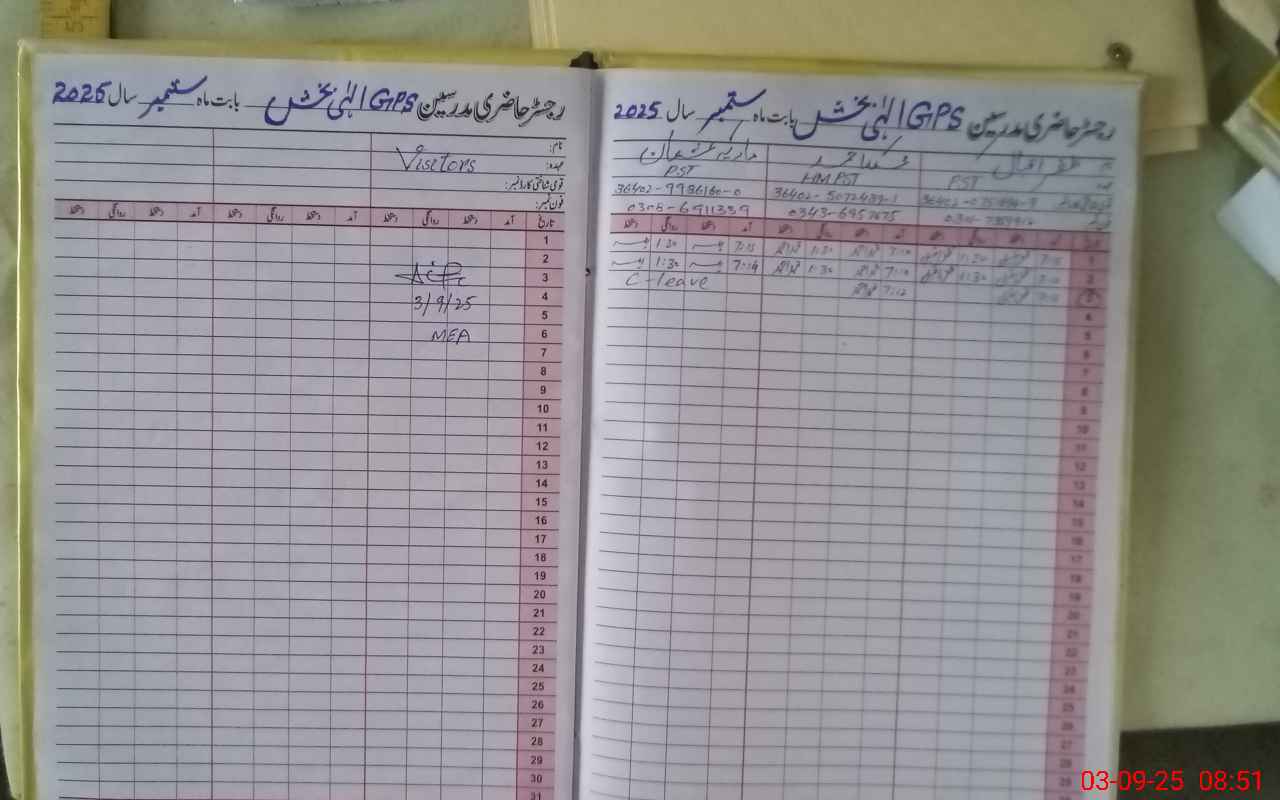 رجسٹر حاضری مدرسین GPS الٰہی بخش بابت ماہ ستمبر سال 2025
نام:
عہدہ:
قومی شناختی کارڈ نمبر:
فون نمبر:
Visitors
تاریخ آمد دستخط روانگی دستخط آمد دستخط روانگی دستخط آمد دستخط روانگی دستخط
1
2
3
4
5
6
7
8
9
10
11
12
13
14
15
16
17
18
19
20
21
22
23
24
25
26
27
28
29
30
31
3/9/25
MEA
رجسٹر حاضری مدرسین GPS الٰہی بخش بابت ماہ ستمبر سال 2025
ظفر اقبال
PST HM PST PST
36402-5072489-1 36402-9986160-0
0343-6957675 0305-6911339
آمد دستخط روانگی دستخط آمد دستخط روانگی دستخط آمد دستخط روانگی دستخط
1 7:15 1:30 7:10 1:30 7:15 1:30
2 7:10 1:30 7:10 1:30 7:14 1:30
3 7:10 7:12 C-leave
4
5
6
7
8
9
10
11
12
13
14
15
16
17
18
19
20
21
22
23
24
25
26
27
28
29
03-09-25 08:51